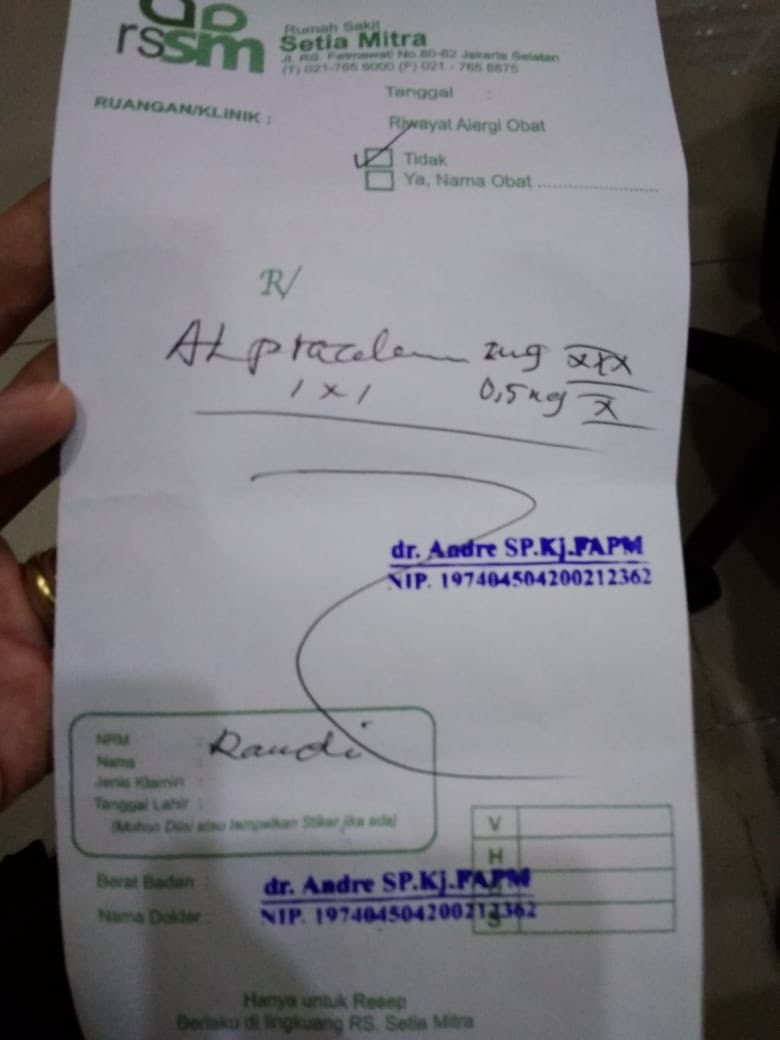 rssm
Rumah Sakit
Setia Mitra
Jl. RS. Fatmawati No.80-82 Jakarta Selatan
(T) 021-765 6000 (F) 021 - 765 6875
Tanggal :
RUANGAN/KLINIK :
Riwayat Alergi Obat
Tidak
Ya, Nama Obat ........................
R/
ALprazolam 2mg XXX
1 x 1 0,5mg X
dr. Andre SP.Kj.FAPM
NIP. 197404504200212362
NRM :
Nama : Randi
Jenis Klamin :
Tanggal Lahir :
(Mohon Diisi atau tempelkan Stiker jika ada)
V
H
S
Berat Badan :
dr. Andre SP.Kj.FAPM
Nama Dokter : NIP. 197404504200212362
Hanya untuk Resep
Berlaku di lingkuang RS. Setia Mitra